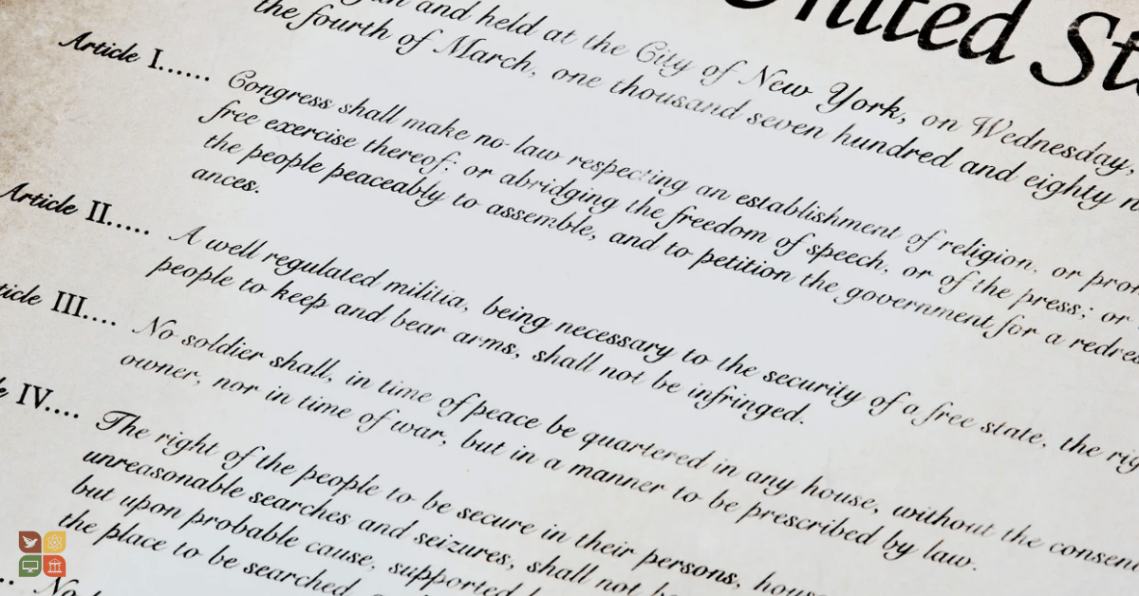 United St
and held at the City of New York, on Wednesday,
the fourth of March, one thousand seven hundred and eighty n
Article I...... Congress shall make no law respecting an establishment of religion, or pro
free exercise thereof; or abridging the freedom of speech, or of the press; or
the people peaceably to assemble, and to petition the government for a redres
ances.
Article II..... A well regulated militia, being necessary to the security of a free state, the rig
people to keep and bear arms, shall not be infringed.
ticle III.... No soldier shall, in time of peace be quartered in any house, without the consen
owner, nor in time of war, but in a manner to be prescribed by law.
e IV.... The right of the people to be secure in their persons, hous
unreasonable searches and seizures, shall not be
but upon probable cause, supported
the place to be searched,
No